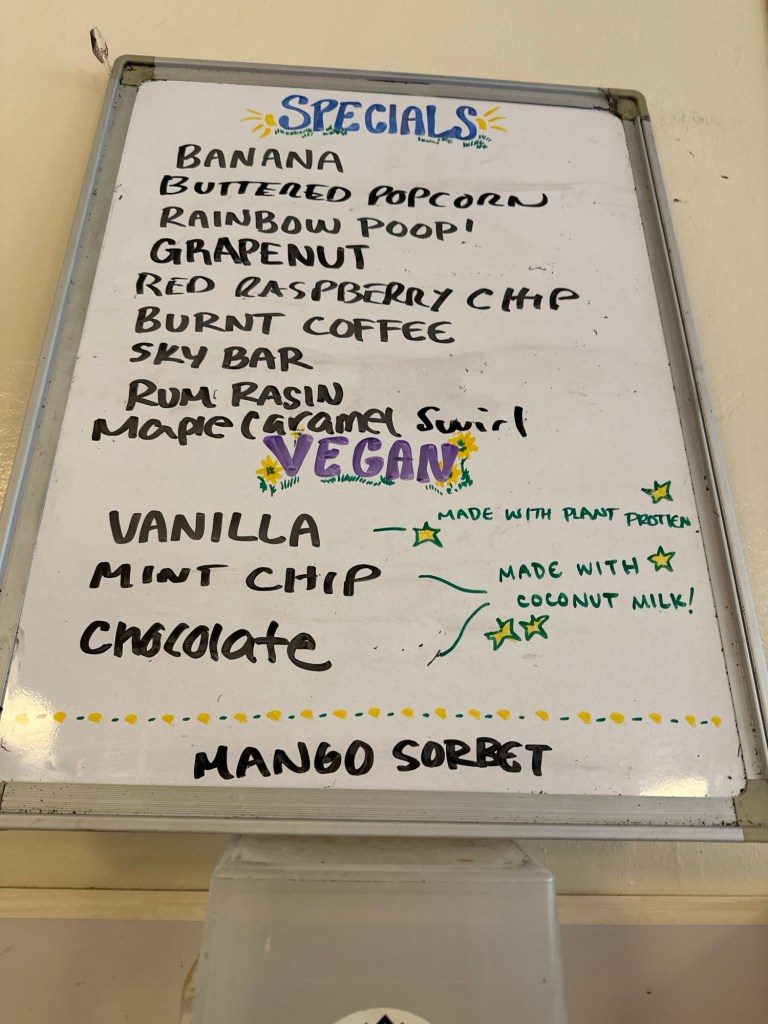 SPECIALS
BANANA
BUTTERED POPCORN
RAINBOW POOP!
GRAPENUT
RED RASPBERRY CHIP
BURNT COFFEE
SKY BAR
RUM RASIN
Maple Caramel Swirl
VEGAN
VANILLA — MADE WITH PLANT PROTIEN
MINT CHIP
MADE WITH
COCONUT MILK!
Chocolate
MANGO SORBET